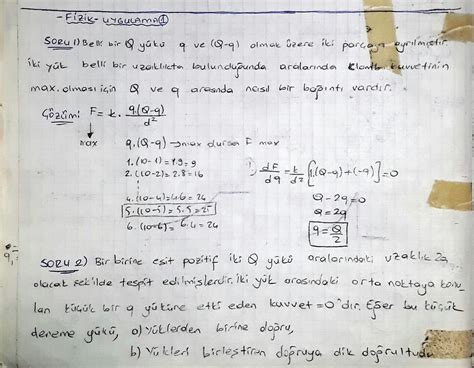 -Fizik- UYGULAMA ①
SORU 1) Belli bir Q yükü q ve (Q-q) olmak üzere iki parçaya ayrılmıştır.
iki yük belli bir uzaklıkta bulunduğunda aralarında klomb kuvvetinin
max. olması için Q ve q arasında nasıl bir bağıntı vardır.
Çözüm: F = k. q.(Q-q) / d²
max q.(Q-q) → max dursa F max
1.(10-1)=1.9=9
2.(10-2)=2.8=16
4.(10-4)=4.6=24
5.(10-5)=5.5=25
6.(10-6)=6.4=24
dF/dq = k/d² [1.(Q-q)+(-q)]=0
Q-2q=0
Q=2q
q=Q/2
SORU 2) Bir birine eşit pozitif iki Q yükü aralarındaki uzaklık 2a
olacak şekilde tespit edilmişlerdir. iki yük arasındaki orta noktaya konu-
lan küçük bir q yüküne etki eden kuvvet=0'dır. Eğer bu küçük
deneme yükü, a) yüklerden birine doğru,
b) Yükleri birleştiren doğruya dik doğrultuda